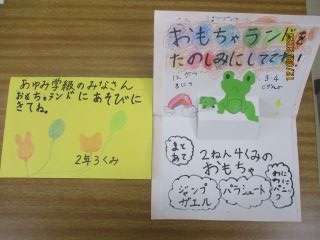 あゆみ学級のみなさん
おもちゃランドにあそびに
きてね。
2年3くみ
おもちゃランドを
たのしみにしててね!
まと
あて
2ねん4くみの
おもちゃ
ジャンプ
ガエル
パラシュート